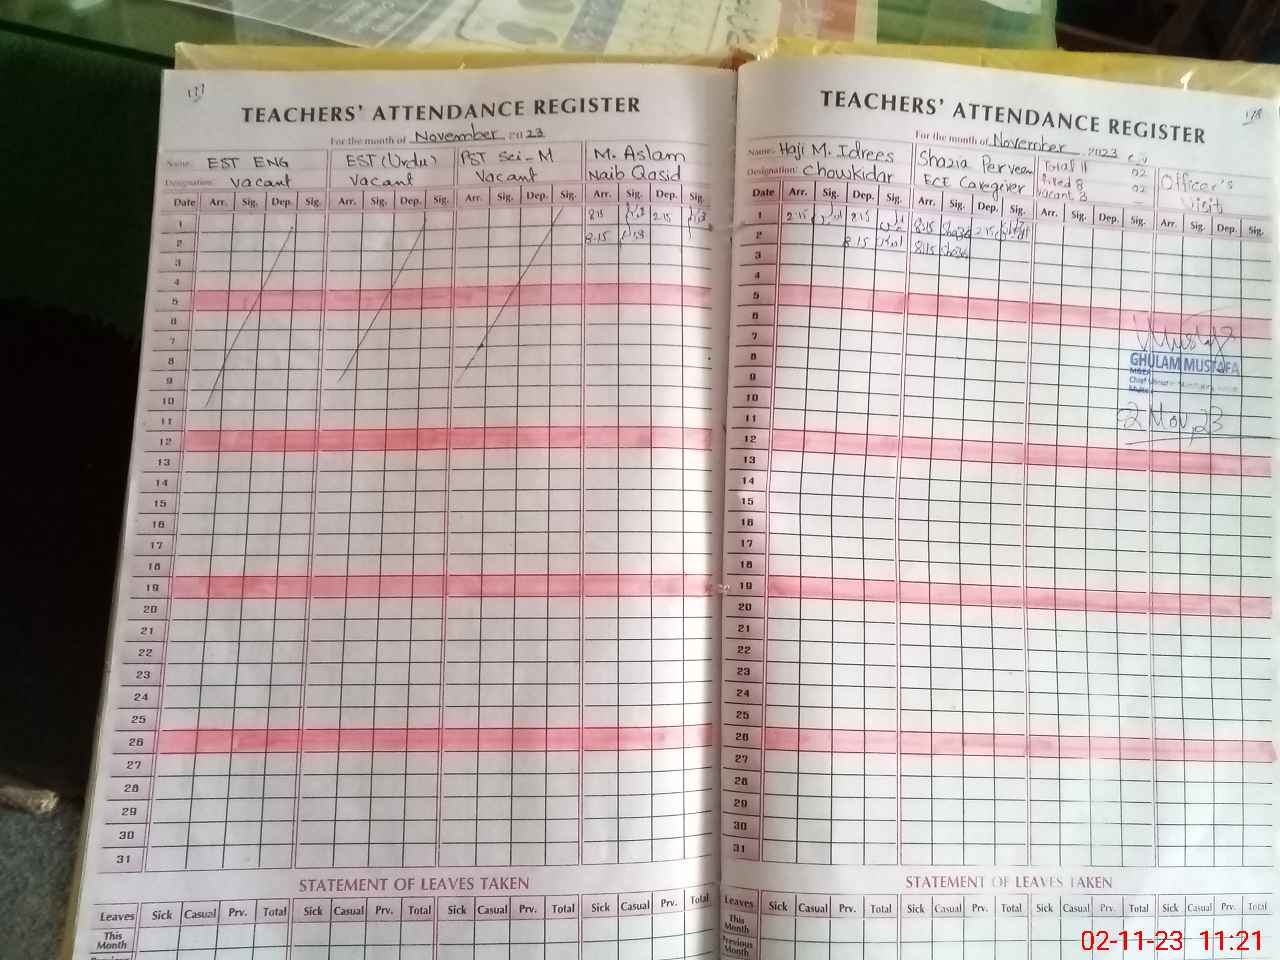 177
TEACHERS' ATTENDANCE REGISTER
For the month of November 2023
Name: EST ENG EST (Urdu) PST Sci-M M. Aslam
Designation: Vacant Vacant Vacant Naib Qasid
Date Arr. Sig. Dep. Sig. Arr. Sig. Dep. Sig. Arr. Sig. Dep. Sig. Arr. Sig. Dep. Sig.
1 8.15 2.15
2 8.15
3
4
5
6
7
8
9
10
11
12
13
14
15
16
17
18
19
20
21
22
23
24
25
26
27
28
29
30
31
STATEMENT OF LEAVES TAKEN
Leaves Sick Casual Prv. Total Sick Casual Prv. Total Sick Casual Prv. Total Sick Casual Prv. Total
This Month
178
TEACHERS' ATTENDANCE REGISTER
For the month of November 2023
Name: Haji M. Idrees Shazia Perveen Total 11 02 Officer's
Designation: Chowkidar ECE Caregiver filled 8 02 Visit
Vacant 3
Date Arr. Sig. Dep. Sig. Arr. Sig. Dep. Sig. Arr. Sig. Dep. Sig. Arr. Sig. Dep. Sig.
1 2.15 8.15 8.15 2.15
2 8.15 8.15
3
4
5
6
7
8
9
10
11
12
13
14
15
16
17
18
19
20
21
22
23
24
25
26
27
28
29
30
31
GHULAM MUSTAFA
2 Nov, 23
STATEMENT OF LEAVES TAKEN
Leaves Sick Casual Prv. Total Sick Casual Prv. Total Sick Casual Prv. Total Sick Casual Prv. Total
This Month
Previous Month
02-11-23 11:21